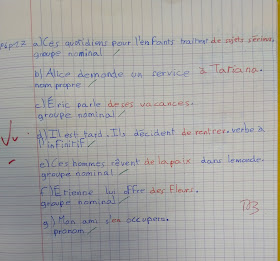 a) Ces quotidiens pour l'enfants traitent de sujets sérieux.
groupe nominal
b) Alice demande un service à Tatiana.
nom propre
c) Éric parle de ses vacances.
groupe nominal
d) Il est tard. Ils décident de rentrer. verbe à
l'infinitif
e) Ces hommes rêvent de la paix dans le monde.
groupe nominal
f) Étienne lui offre des fleurs.
groupe nominal
g) Mon ami s'en occupera.
pronom